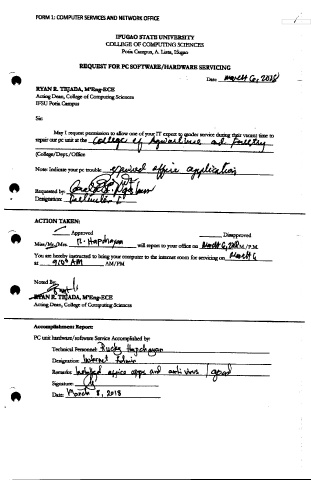 FORM 1: COMPUTER SERVICES AND NETWORK OFFICE
IFUGAO STATE UNIVERSITY
COLLEGE OF COMPUTING SCIENCES
Potia Campus, A. Lista, Ifugao
REQUEST FOR PC SOFTWARE/HARDWARE SERVICING
Date March 6, 2018
RYAN R. TEJADA, M'Eng-ECE
Acting Dean, College of Computing Sciences
IFSU Potia Campus
Sir:
May I request permission to allow one of your IT expert to render service during their vacant time to
repair our pc unit at the College of Agriculture and Forestry
(College/Dept./Office
Note: Indicate your pc trouble expired office application
Requested by:
Designation:
ACTION TAKEN:
Approved Disapproved
Miss/Mr./Mrs. R. Hapdnayan will report to your office on March 6, 2018 AM/PM
You are hereby instructed to bring your computer to the internet room for servicing on March 6
at 9:00 AM AM/PM
Noted By:
RYAN R. TEJADA, M'Eng-ECE
Acting Dean, College of Computing Sciences
Accomplishment Report:
PC unit hardware/software Service Accomplished by:
Technical Personnel: Rucky
Designation:
Remarks: Installed office apps and anti virus / good
Signature:
Date: March 8, 2018